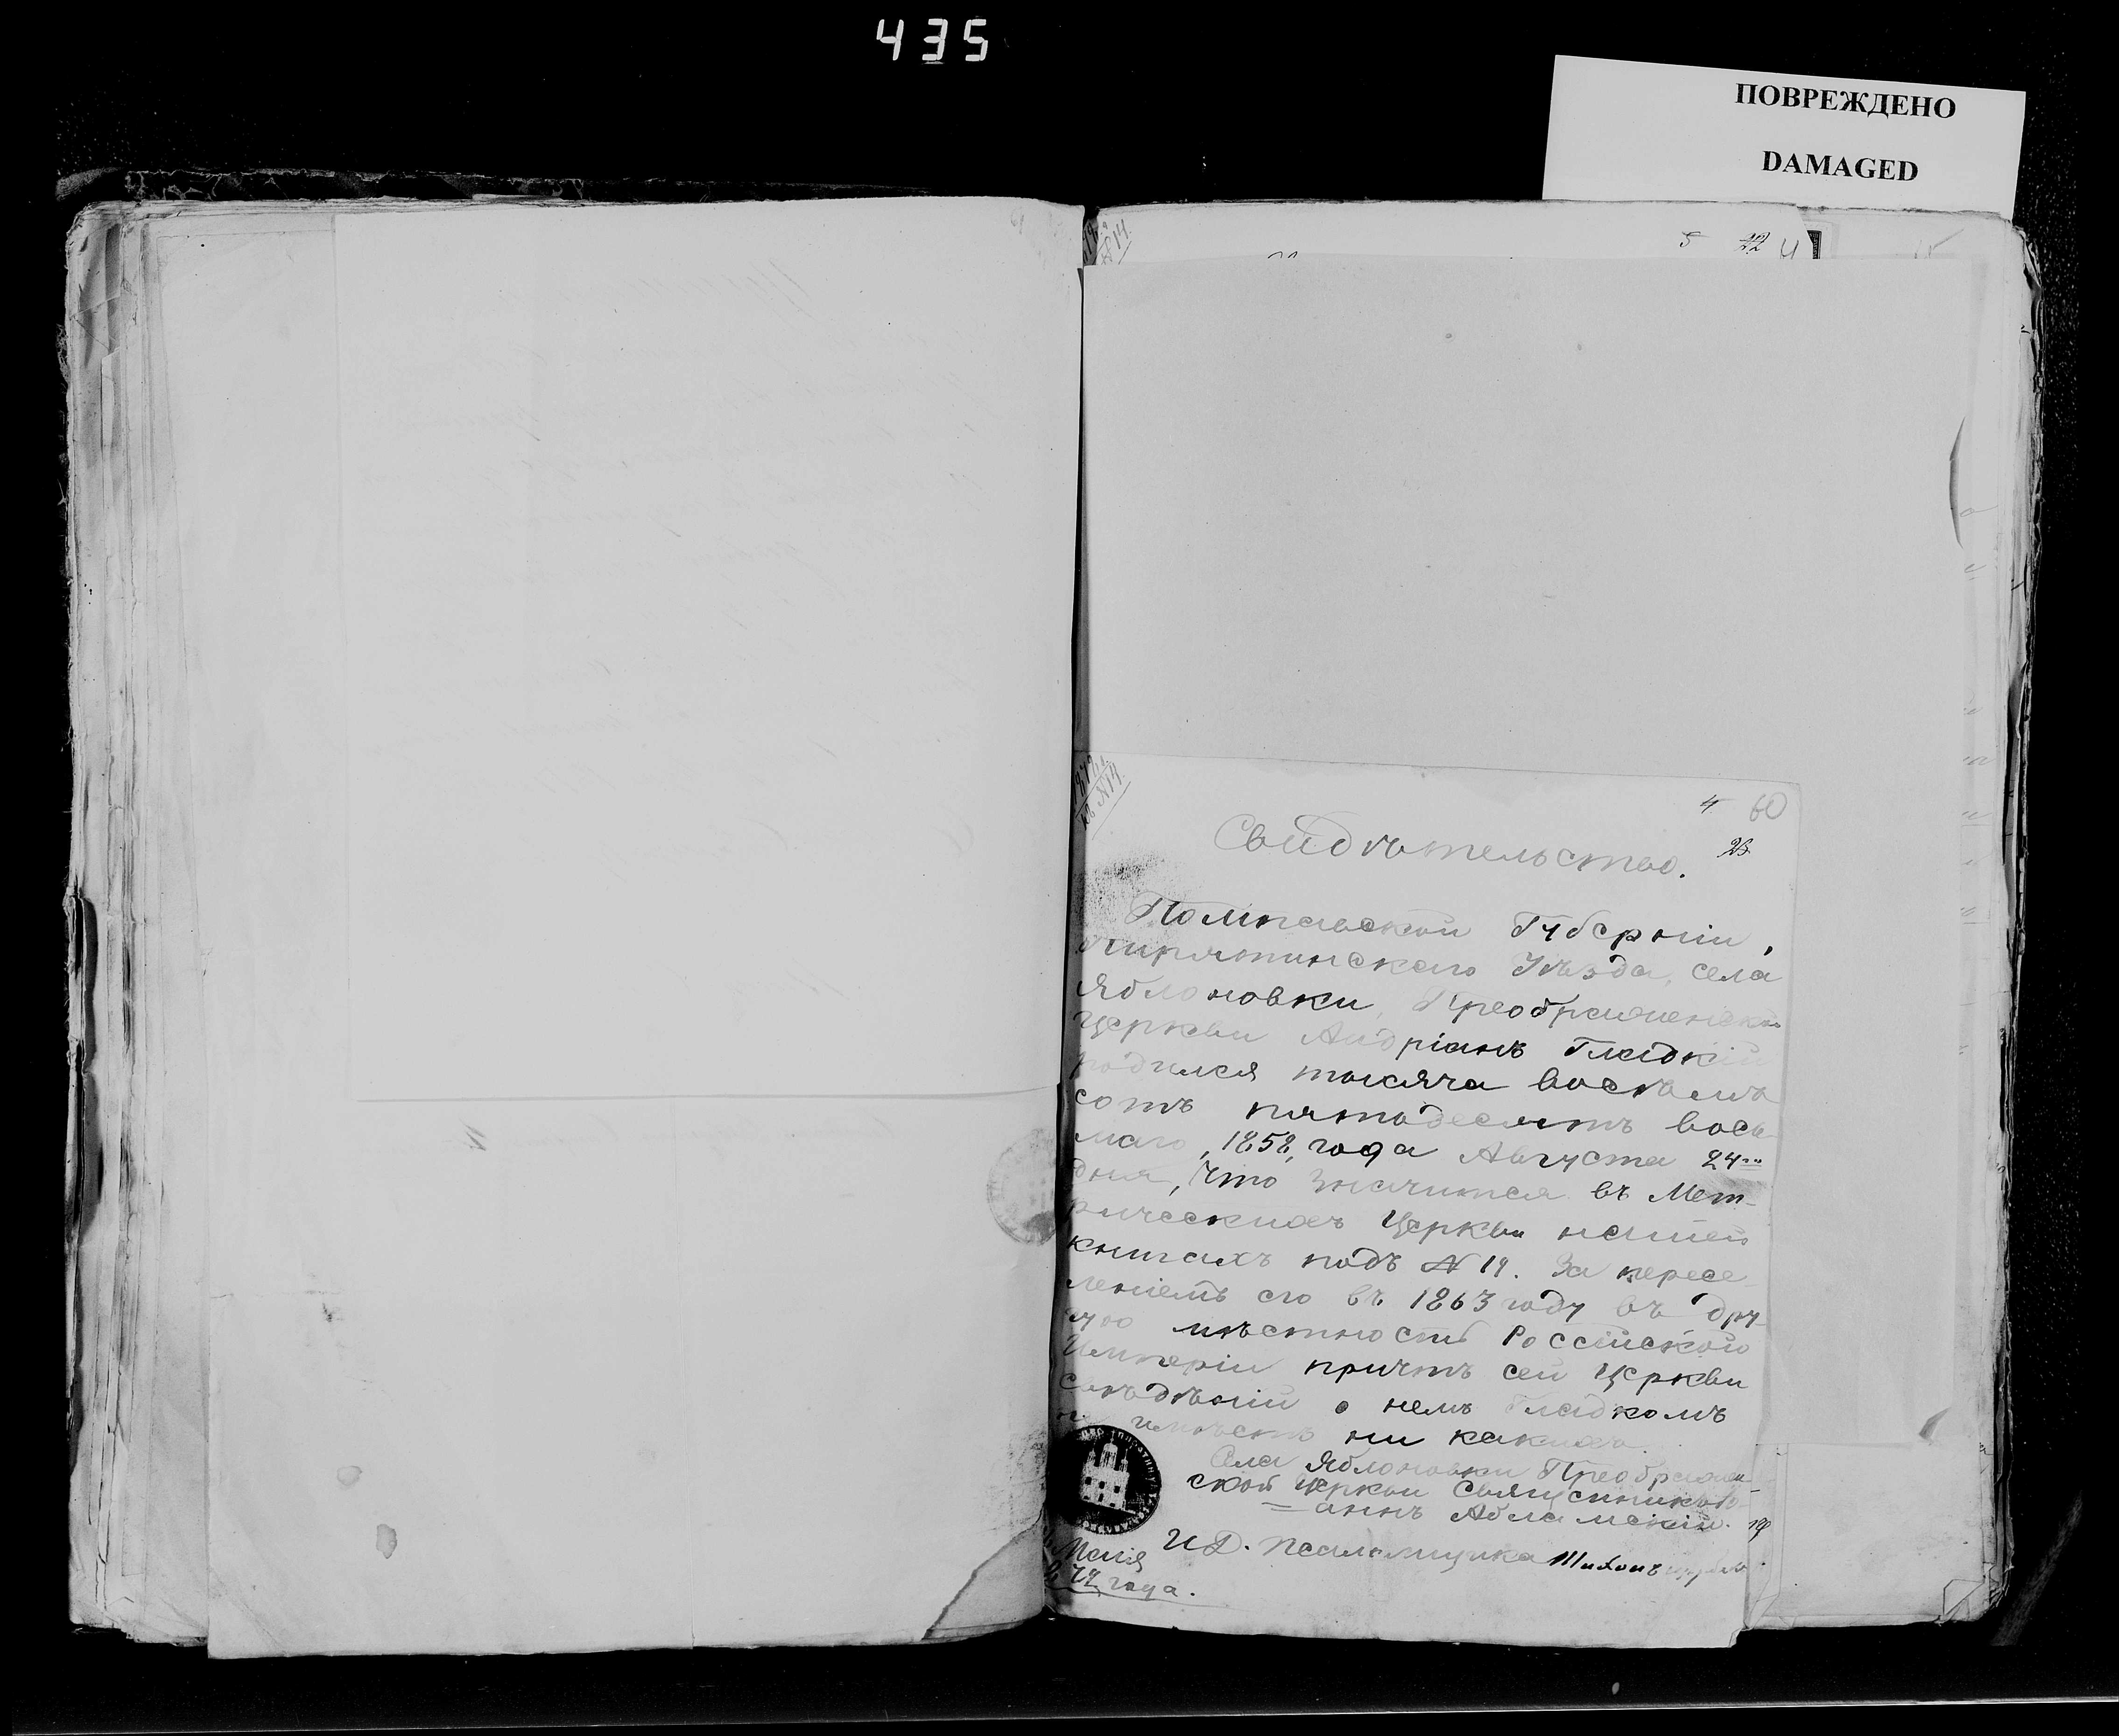 435
ПОВРЕЖДЕНО
DAMAGED
5 22 4
4 60
23
Свидѣтельство.
Полтавской Губерніи,
Пирятинскаго Уѣзда, села
Яблоновки, Преображенской
Церкви Андріанъ Гладкій
родился тысяча восѣмъ
сотъ пятьдесятъ вось-
маго, 1858, года Августа 24го
дня, что значится въ Мет-
рическихъ Церкви нашей
книгахъ подъ № 19. За пересе-
леніемъ его въ 1863 году въ дру-
гую мѣстность Россійской
Имперіи причтъ сей Церкви
свѣдѣній о немъ Гладкомъ
не имѣетъ ни какихъ.
Села Яблоновки Преображен-
ской Церкви Священникъ Іо-
=аннъ Абламскій.
И.Д. Псаломщика Тихонъ
Мая
года.